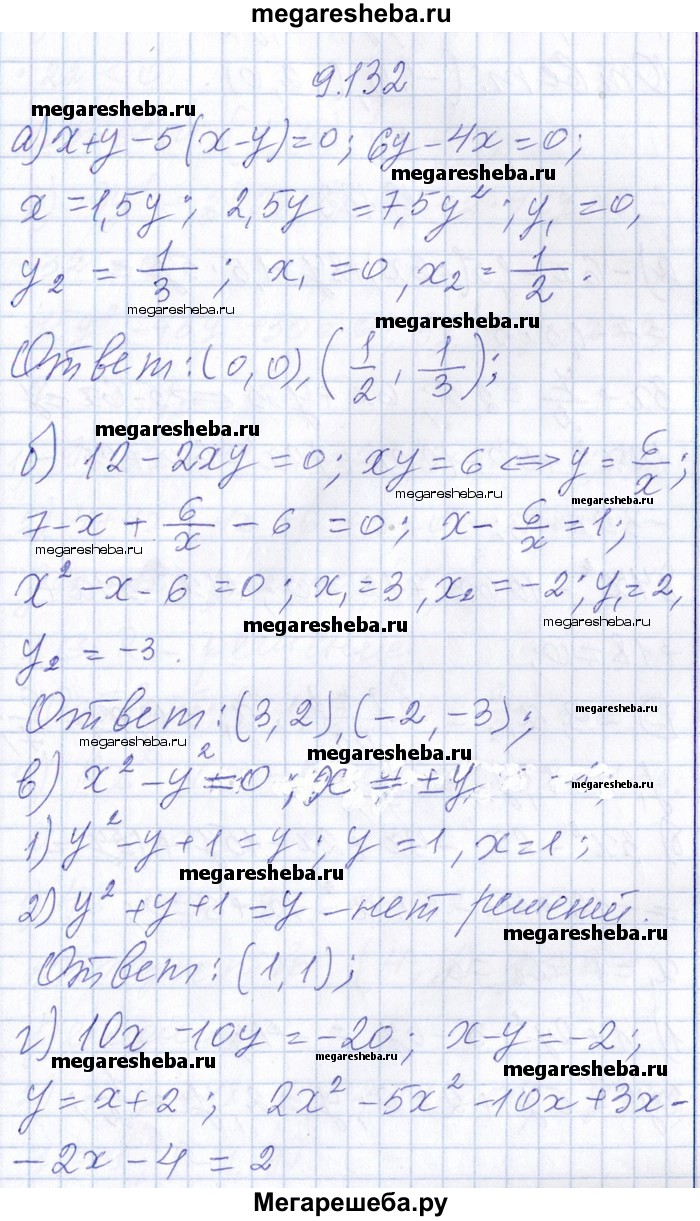 megaresheba.ru
9.132
megaresheba.ru
а) x+y-5(x-y)=0; 6y-4x=0;
megaresheba.ru
x=1,5y; 2,5y =7,5y²; y₁=0,
y₂ = 1/3; x₁=0, x₂=1/2.
megaresheba.ru
megaresheba.ru
Ответ: (0,0), (1/2, 1/3);
megaresheba.ru
б) 12-2xy=0; xy=6 ⟺ y=6/x;
megaresheba.ru
megaresheba.ru
7-x+6/x-6=0; x-6/x=1;
megaresheba.ru
x²-x-6=0; x₁=3, x₂=-2; y₁=2,
megaresheba.ru
megaresheba.ru
y₂=-3.
Ответ: (3,2), (-2,-3);
megaresheba.ru
megaresheba.ru
megaresheba.ru
в) x²-y²=0; x=±y
megaresheba.ru
1) y²-y+1=y; y=1, x=1;
megaresheba.ru
2) y²+y+1=y – нет решений.
megaresheba.ru
Ответ: (1,1);
г) 10x-10y=-20; x-y=-2;
megaresheba.ru
megaresheba.ru
megaresheba.ru
y=x+2; 2x²-5x²-10x+3x-
-2x-4=2
Мегарешеба.ру